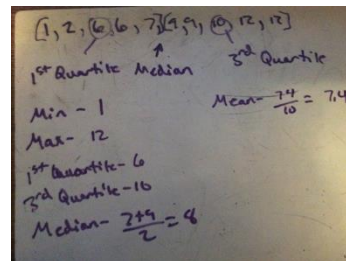 [1, 2, 6, 6, 7,][9, 9, 10, 12, 12]
1st Quartile Median 3rd Quartile
Min - 1
Max - 12
1st Quartile - 6
3rd Quartile - 10
Median - 7+9/2 = 8
Mean - 74/10 = 7.4